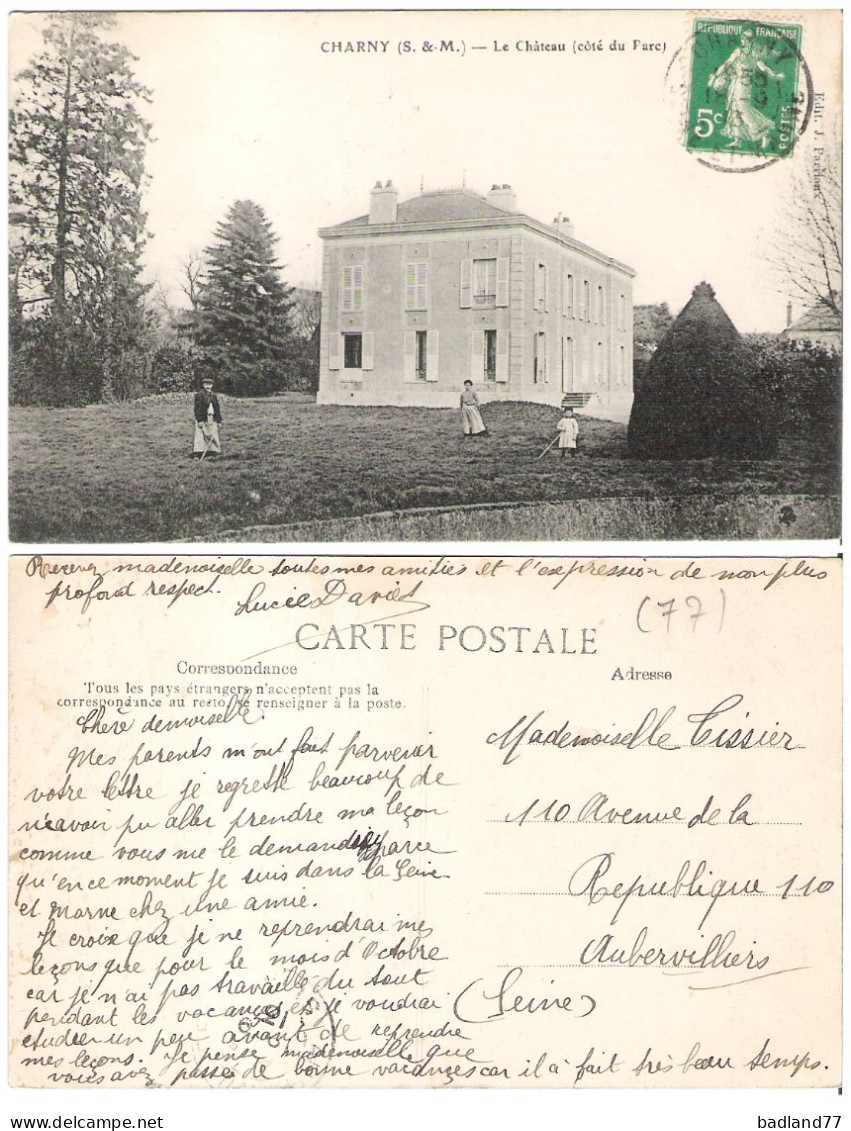 CHARNY (S. & M.) — Le Château (côté du Parc)
REPUBLIQUE FRANÇAISE
5c
POSTES
CHARNY
Edit. J. Parriaux
Recevez mademoiselle toutes mes amitiés et l'expression de mon plus
profond respect.
Lucie
(77)
CARTE POSTALE
Correspondance
Adresse
Tous les pays étrangers n'acceptent pas la
correspondance au recto, se renseigner à la poste.
Chère demoiselle.
Mes parents m'ont fait parvenir
votre lettre je regrette beaucoup de
n'avoir pu aller prendre ma leçon
comme vous me le demandiez parce
qu'en ce moment je suis dans la Seine
et Marne chez une amie.
Je crois que je ne reprendrai mes
leçons que pour le mois d'Octobre
car je n'ai pas travaillé du tout
pendant les vacances et je voudrai
etudier un peu avant de reprendre
mes leçons. Je pense mademoiselle que
vous avez passé de bonne vacances car il à fait très beau temps.
Mademoiselle Tissier
110 Avenue de la
Republique 110
Aubervilliers
(Seine)
badland77
DELCAMPE.NET